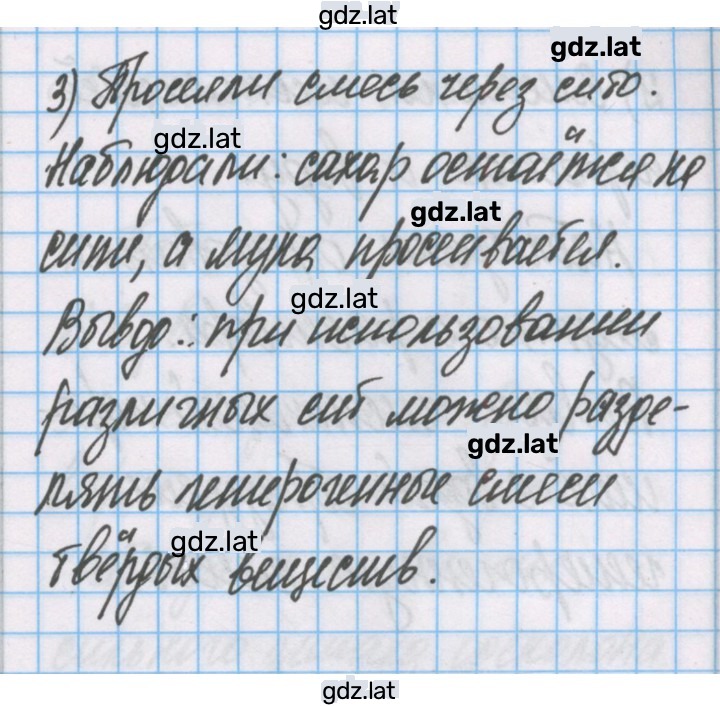 gdz.lat
gdz.lat
3) Просеяли смесь через сито.
gdz.lat
Наблюдали: сахар остаётся на
gdz.lat
сите, а мука просеивается.
gdz.lat
Вывод: при использовании
различных сит можно разде-
gdz.lat
лять гетерогенные смеси
gdz.lat
твёрдых веществ.
gdz.lat